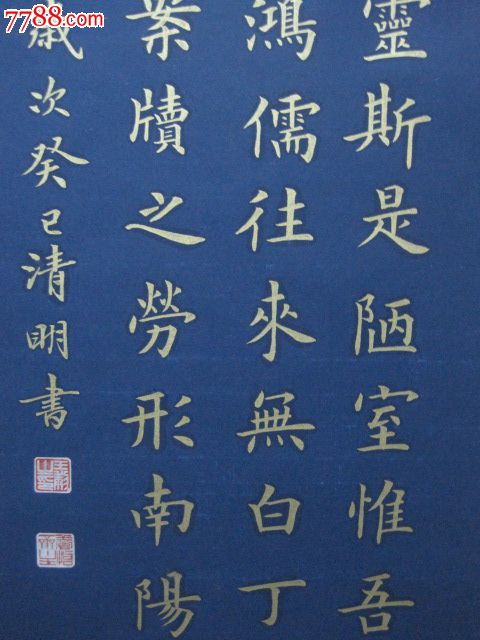 7788.com
靈斯是陋室惟吾
鴻儒往來無白丁
案牘之勞形南陽
歲次癸巳清明書